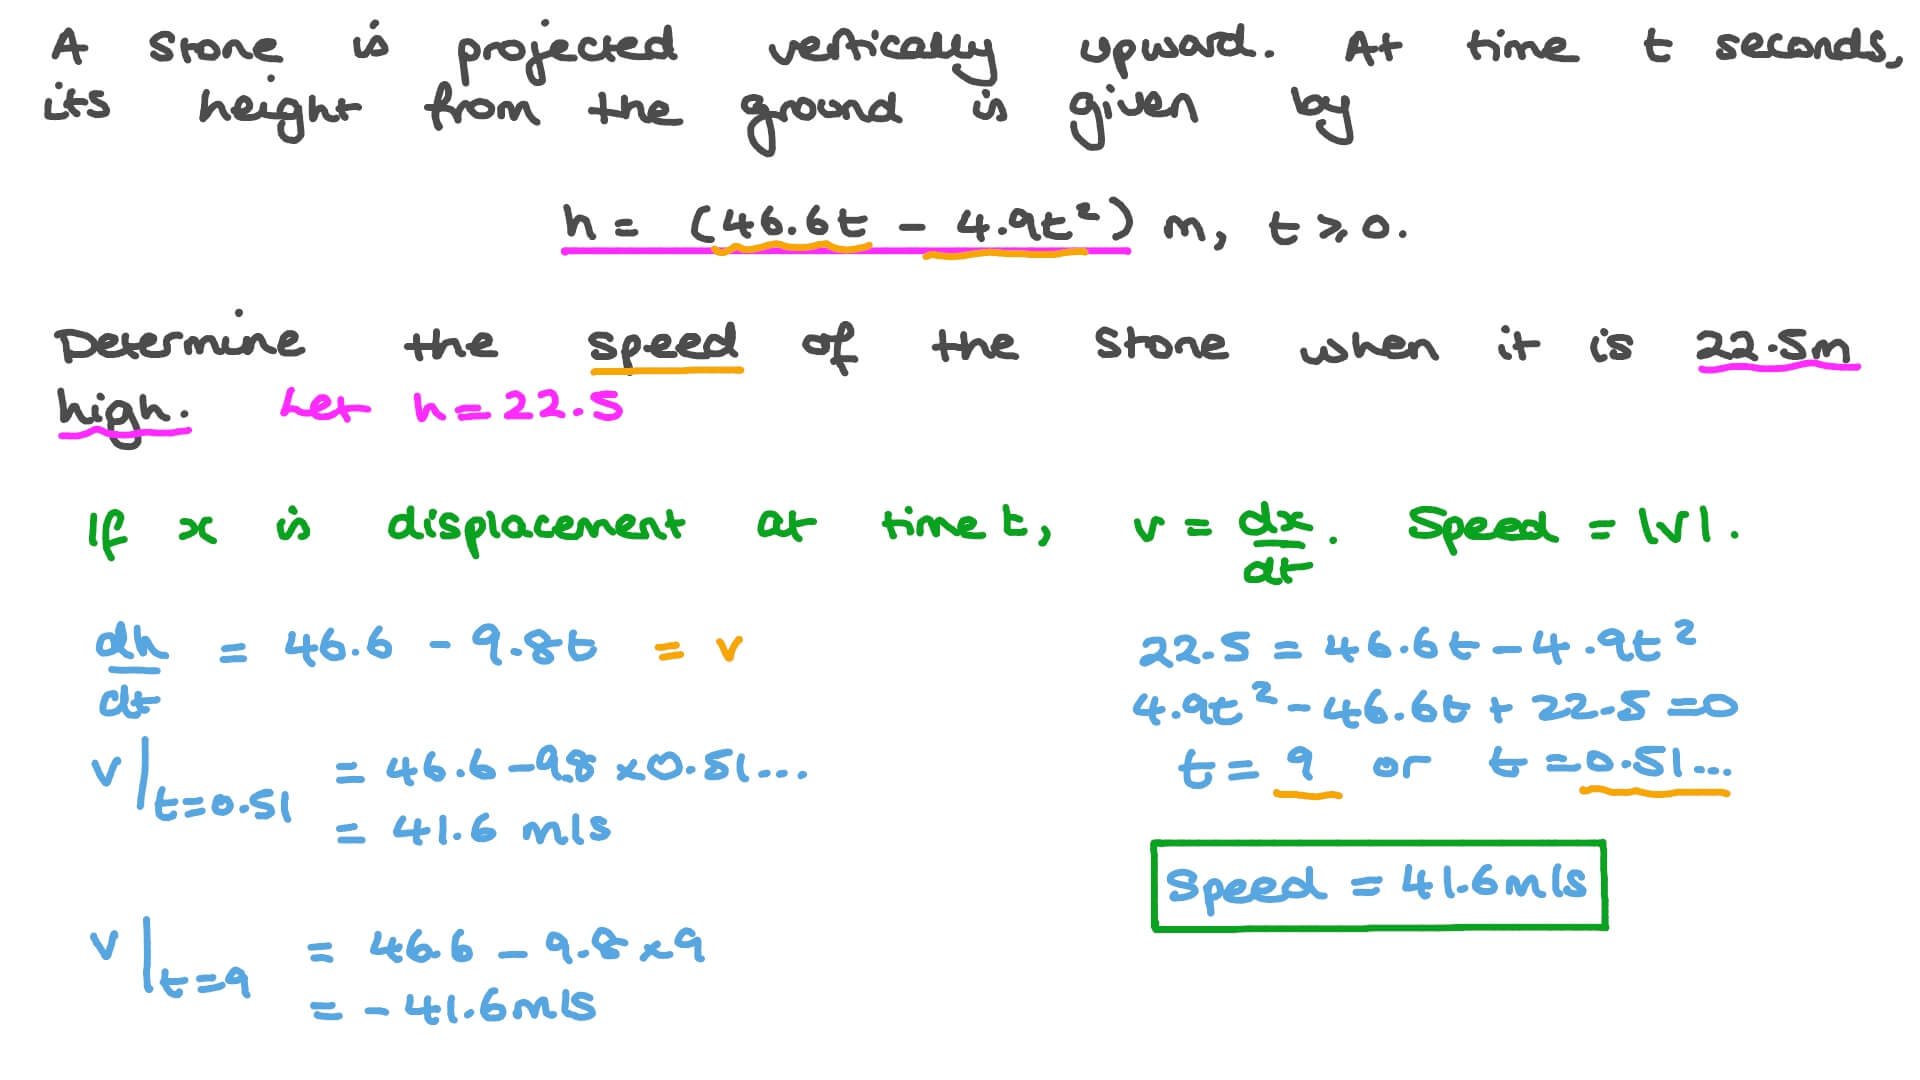 A stone is projected vertically upward. At time t seconds,
its height from the ground is given by
h = (46.6t - 4.9t²) m, t ⩾ 0.
Determine the speed of the stone when it is 22.5m
high. Let h = 22.5
If x is displacement at time t, v = dx/dt. Speed = |v|.
dh/dt = 46.6 - 9.8t = v
v|t=0.51 = 46.6 - 9.8 × 0.51...
= 41.6 m/s
v|t=9 = 46.6 - 9.8 × 9
= - 41.6 m/s
22.5 = 46.6t - 4.9t²
4.9t² - 46.6t + 22.5 = 0
t = 9 or t = 0.51...
Speed = 41.6 m/s